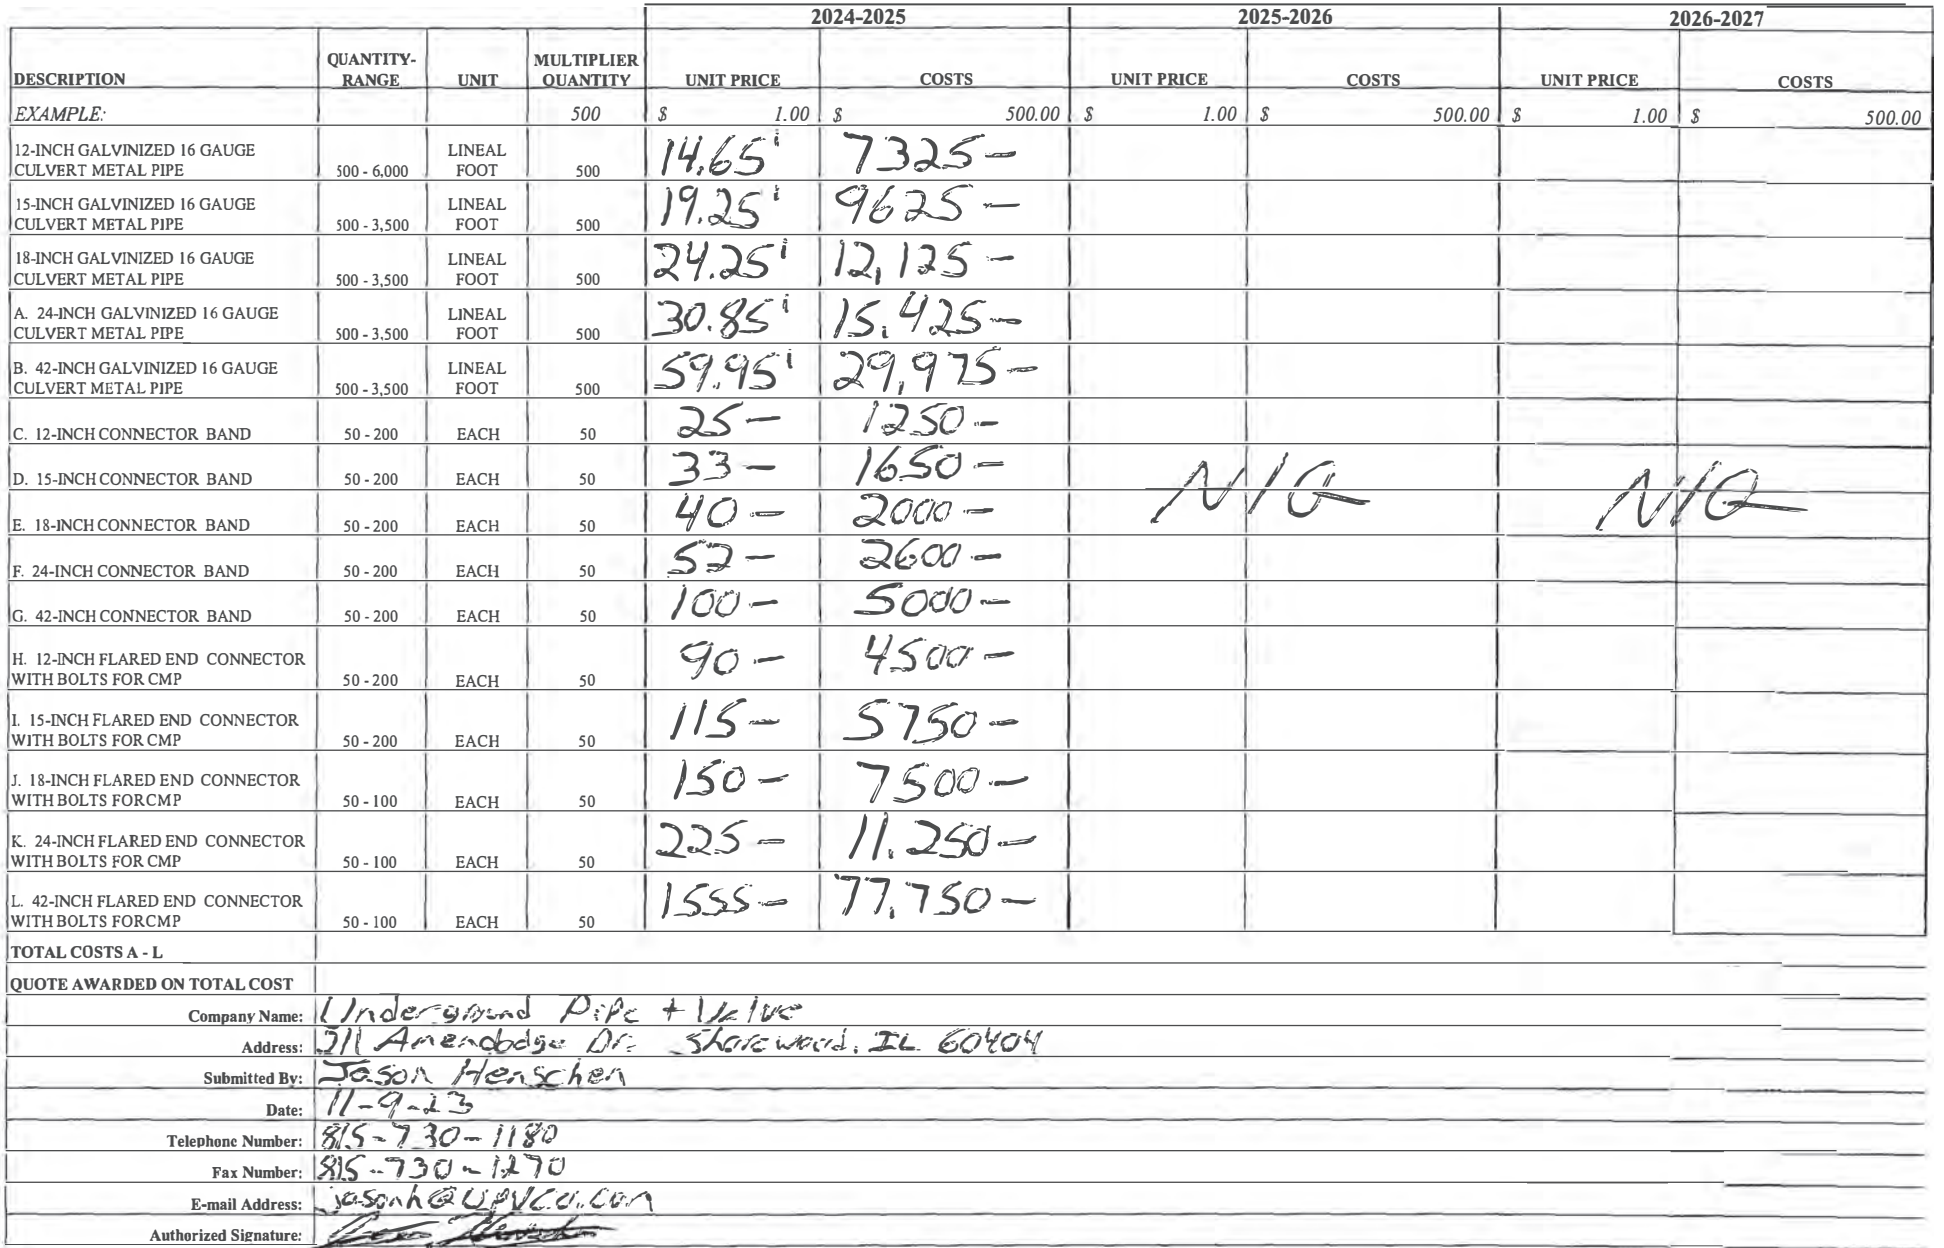 2024-2025 2025-2026 2026-2027
DESCRIPTION QUANTITY-RANGE UNIT MULTIPLIER QUANTITY UNIT PRICE COSTS UNIT PRICE COSTS UNIT PRICE COSTS
EXAMPLE: 500 $ 1.00 $ 500.00 $ 1.00 $ 500.00 $ 1.00 $ 500.00
12-INCH GALVINIZED 16 GAUGE CULVERT METAL PIPE 500 - 6,000 LINEAL FOOT 500 14.65' 7325-
15-INCH GALVINIZED 16 GAUGE CULVERT METAL PIPE 500 - 3,500 LINEAL FOOT 500 19.25' 9625-
18-INCH GALVINIZED 16 GAUGE CULVERT METAL PIPE 500 - 3,500 LINEAL FOOT 500 24.25' 12,125-
A. 24-INCH GALVINIZED 16 GAUGE CULVERT METAL PIPE 500 - 3,500 LINEAL FOOT 500 30.85' 15,425-
B. 42-INCH GALVINIZED 16 GAUGE CULVERT METAL PIPE 500 - 3,500 LINEAL FOOT 500 59.95' 29,975-
C. 12-INCH CONNECTOR BAND 50 - 200 EACH 50 25- 1250-
D. 15-INCH CONNECTOR BAND 50 - 200 EACH 50 33- 1650-
E. 18-INCH CONNECTOR BAND 50 - 200 EACH 50 40- 2000- N/Q N/Q
F. 24-INCH CONNECTOR BAND 50 - 200 EACH 50 52- 2600-
G. 42-INCH CONNECTOR BAND 50 - 200 EACH 50 100- 5000-
H. 12-INCH FLARED END CONNECTOR WITH BOLTS FOR CMP 50 - 200 EACH 50 90- 4500-
I. 15-INCH FLARED END CONNECTOR WITH BOLTS FOR CMP 50 - 200 EACH 50 115- 5750-
J. 18-INCH FLARED END CONNECTOR WITH BOLTS FOR CMP 50 - 100 EACH 50 150- 7500-
K. 24-INCH FLARED END CONNECTOR WITH BOLTS FOR CMP 50 - 100 EACH 50 225- 11,250-
L. 42-INCH FLARED END CONNECTOR WITH BOLTS FOR CMP 50 - 100 EACH 50 1555- 77,750-
TOTAL COSTS A - L
QUOTE AWARDED ON TOTAL COST
Company Name: Underground Pipe + Valve
Address: Dr. Shorewood, IL 60404
Submitted By: Jason Henschen
Date: 11-9-23
Telephone Number: 815-730-1180
Fax Number: 815-730-1270
E-mail Address: jasonh@UPVCO.com
Authorized Signature: